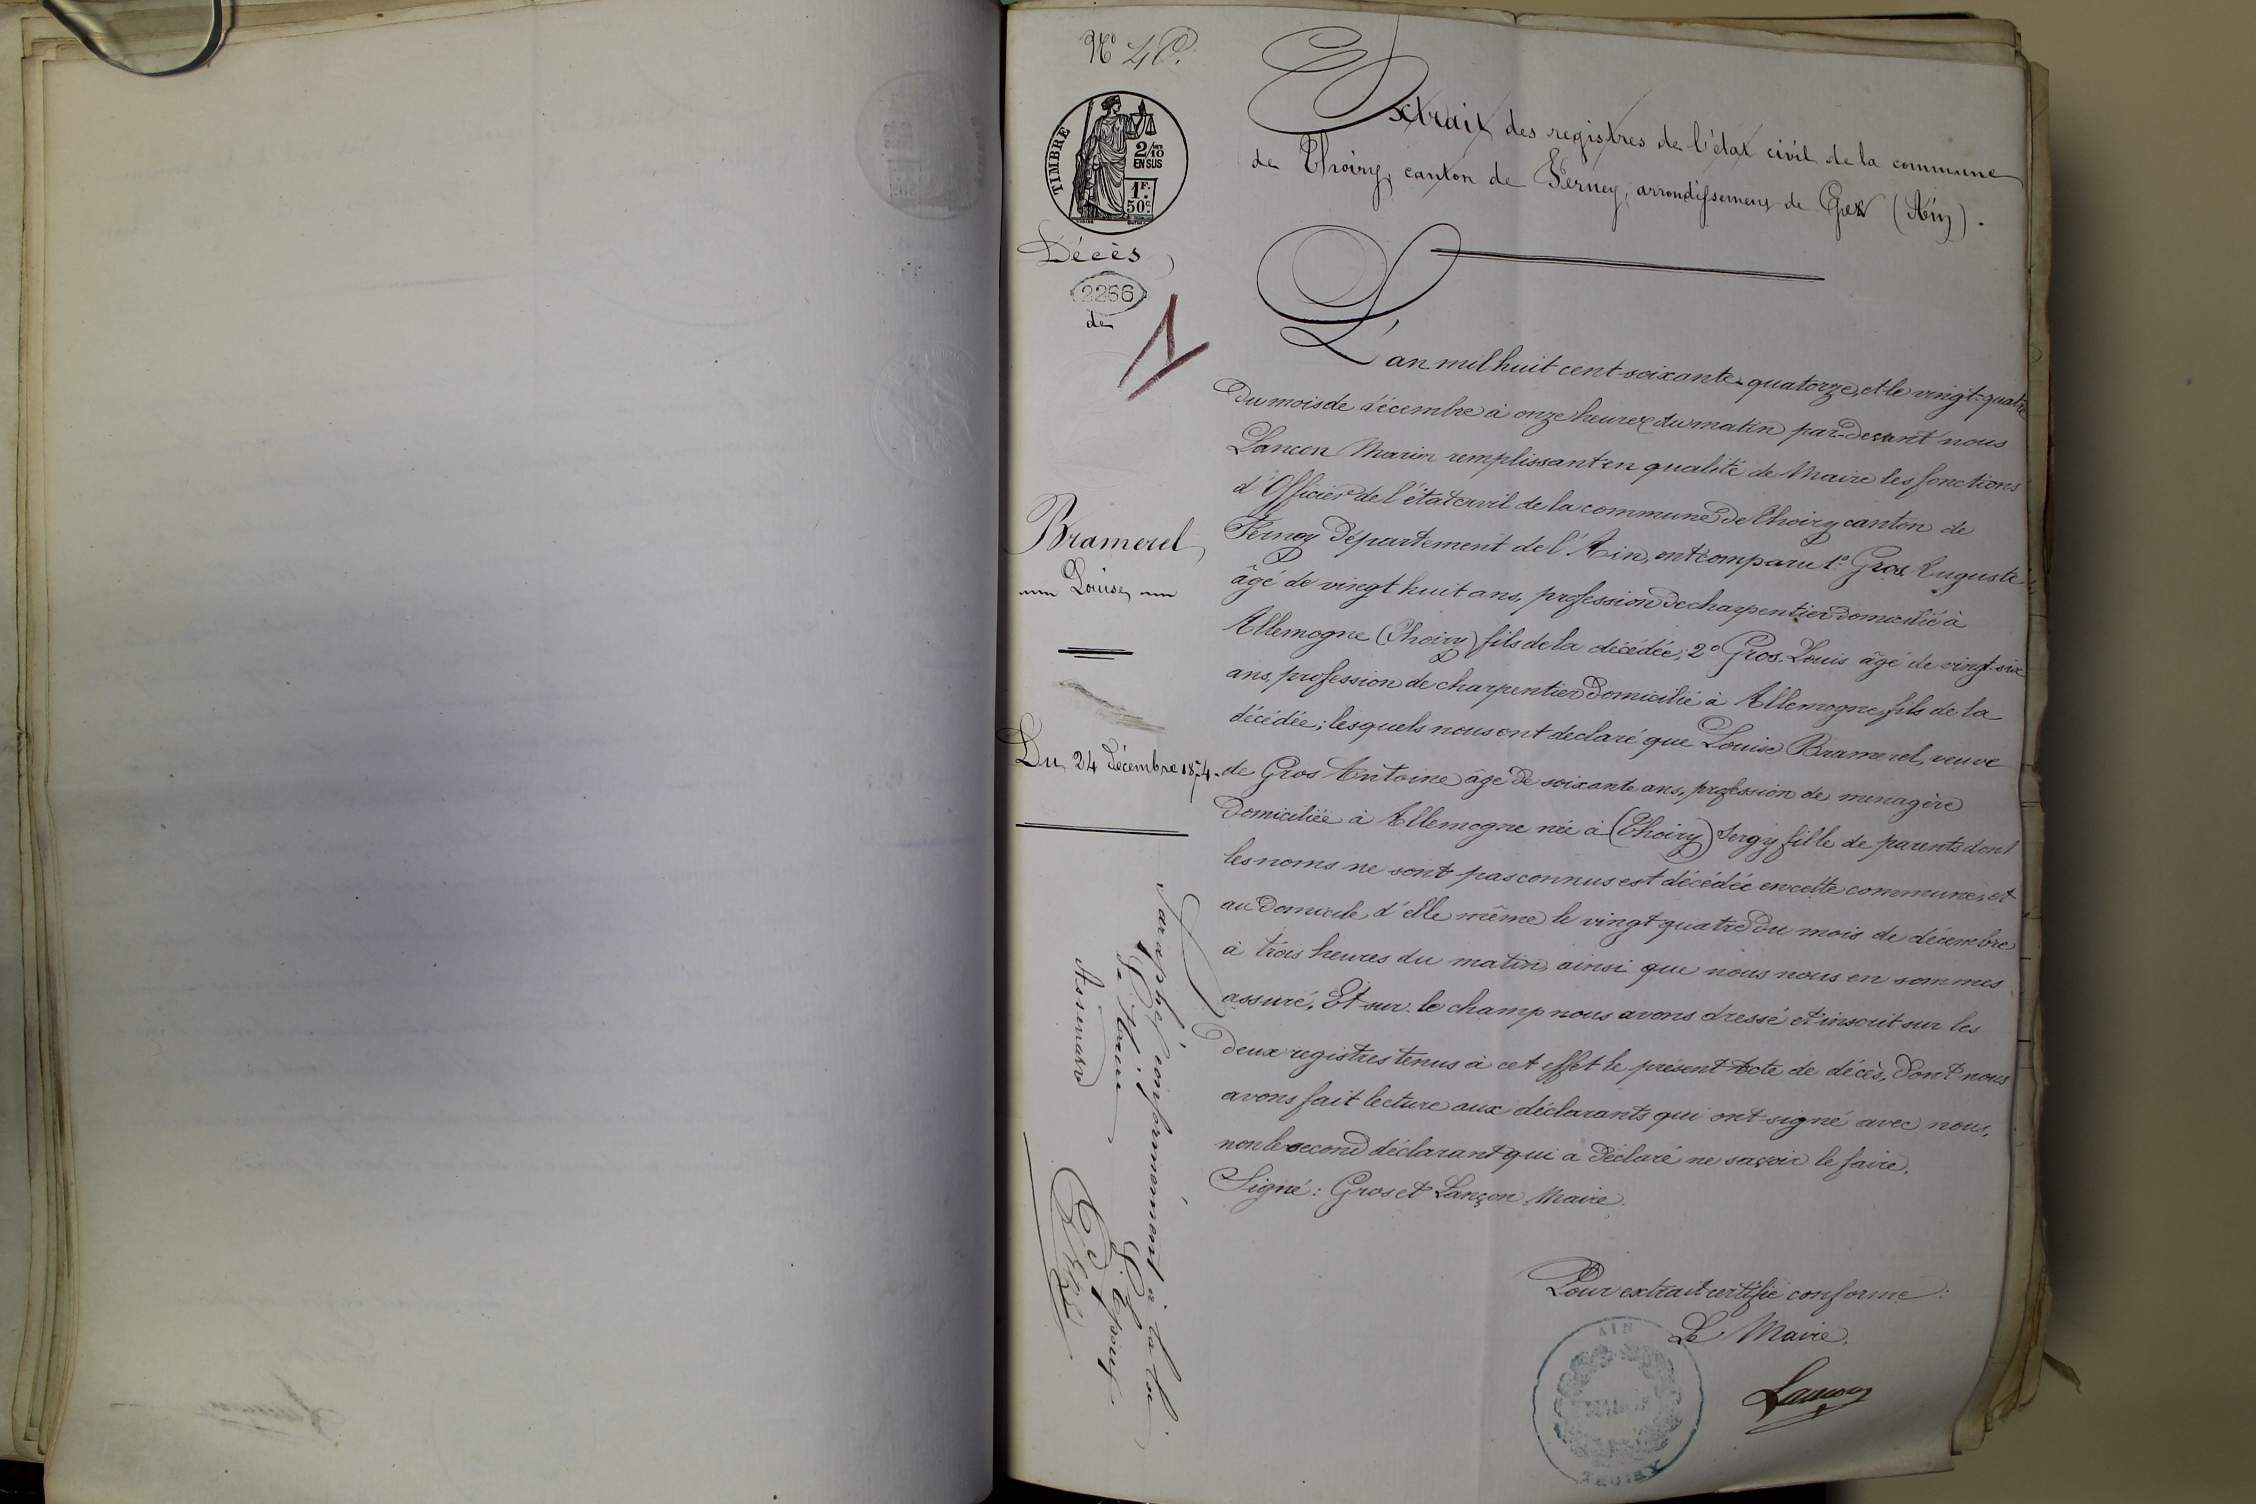 N° 40.
TIMBRE
2/10
EN SUS
1F.
50c.
Extrait des registres de l'état civil de la commune
de Thoiry, canton de Ferney, arrondissement de Gex (Ain).
Décès
2266
de
Bramerel
Louise
Du 24 Décembre 1874.
L'an mil huit cent soixante-quatorze, et le vingt-quatre
du mois de décembre à onze heures du matin par-devant nous
Lançon Marin remplissant en qualité de Maire les fonctions
d'Officier de l'état civil de la commune de Thoiry canton de
Ferney Département de l'Ain, ont comparu 1° Gros Auguste
âgé de vingt huit ans, profession de charpentier domicilié à
Allemogne (Thoiry) fils de la décédée; 2° Gros Louis âgé de vingt-six
ans, profession de charpentier domicilié à Allemogne, fils de la
décédée; lesquels nous ont declaré que Louise Bramerel, veuve
de Gros Antoine âgé de soixante ans, profession de menagère
domiciliée à Allemogne née à (Thoiry) Sergy fille de parents dont
les noms ne sont pas connus est décédée en cette commune, et
au domicile, d'elle même le vingt quatre du mois de décembre
à trois heures du matin, ainsi que nous nous en sommes
assuré, Et sur le champ nous avons dressé et inscrit sur les
deux registres tenus à cet effet le présent Acte de décès, dont nous
avons fait lecture aux déclarants qui ont signé avec nous,
non le second déclarant qui a déclaré ne savoir le faire.
Signé: Gros et Lançon, Maire.
Paraphé conformément à la loi
Le Maire L'Epoux
Pour extrait certifié conforme:
Le Maire,
Lançon
AIN
MAIRIE
THOIRY